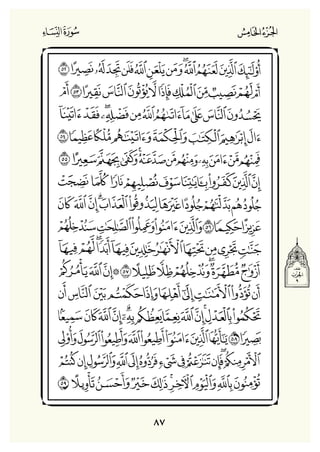 الجزء الخامس سورة النساء
أُولَٰئِكَ الَّذِينَ لَعَنَهُمُ اللَّهُ ۖ وَمَن يَلْعَنِ اللَّهُ فَلَن تَجِدَ لَهُ نَصِيرًا ٥٢
أَمْ لَهُمْ نَصِيبٌ مِّنَ الْمُلْكِ فَإِذًا لَّا يُؤْتُونَ النَّاسَ نَقِيرًا ٥٣ أَمْ
يَحْسُدُونَ النَّاسَ عَلَىٰ مَا آتَاهُمُ اللَّهُ مِن فَضْلِهِ ۖ فَقَدْ آتَيْنَا
آلَ إِبْرَاهِيمَ الْكِتَابَ وَالْحِكْمَةَ وَآتَيْنَاهُم مُّلْكًا عَظِيمًا ٥٤
فَمِنْهُم مَّنْ آمَنَ بِهِ وَمِنْهُم مَّن صَدَّ عَنْهُ ۚ وَكَفَىٰ بِجَهَنَّمَ سَعِيرًا ٥٥
إِنَّ الَّذِينَ كَفَرُوا بِآيَاتِنَا سَوْفَ نُصْلِيهِمْ نَارًا كُلَّمَا نَضِجَتْ
جُلُودُهُم بَدَّلْنَاهُمْ جُلُودًا غَيْرَهَا لِيَذُوقُوا الْعَذَابَ ۗ إِنَّ اللَّهَ كَانَ
عَزِيزًا حَكِيمًا ٥٦ وَالَّذِينَ آمَنُوا وَعَمِلُوا الصَّالِحَاتِ سَنُدْخِلُهُمْ
جَنَّاتٍ تَجْرِي مِن تَحْتِهَا الْأَنْهَارُ خَالِدِينَ فِيهَا أَبَدًا ۖ لَّهُمْ فِيهَا
أَزْوَاجٌ مُّطَهَّرَةٌ ۖ وَنُدْخِلُهُمْ ظِلًّا ظَلِيلًا ٥٧ إِنَّ اللَّهَ يَأْمُرُكُمْ
أَن تُؤَدُّوا الْأَمَانَاتِ إِلَىٰ أَهْلِهَا وَإِذَا حَكَمْتُم بَيْنَ النَّاسِ أَن
تَحْكُمُوا بِالْعَدْلِ ۚ إِنَّ اللَّهَ نِعِمَّا يَعِظُكُم بِهِ ۗ إِنَّ اللَّهَ كَانَ سَمِيعًا
بَصِيرًا ٥٨ يَا أَيُّهَا الَّذِينَ آمَنُوا أَطِيعُوا اللَّهَ وَأَطِيعُوا الرَّسُولَ وَأُولِي
الْأَمْرِ مِنكُمْ ۖ فَإِن تَنَازَعْتُمْ فِي شَيْءٍ فَرُدُّوهُ إِلَى اللَّهِ وَالرَّسُولِ إِن كُنتُمْ
تُؤْمِنُونَ بِاللَّهِ وَالْيَوْمِ الْآخِرِ ۚ ذَٰلِكَ خَيْرٌ وَأَحْسَنُ تَأْوِيلًا ٥٩
٨٧